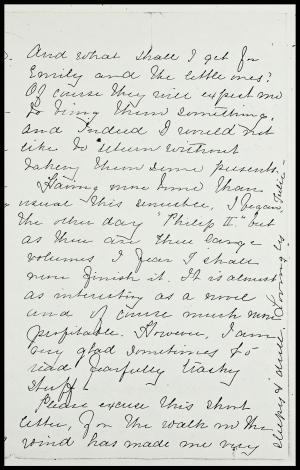 And what shall I get for
Emily and the little ones?
Of course they will expect me
to bring them something,
and indeed I would not
like to return without
taking them some presents.
Having more time than
usual this semester, I began
the other day "Philip II" but
as there are three large
volumes I fear I shall
never finish it. It is almost
as interesting as a novel
and of course much more
profitable. However, I am
very glad sometimes to
read fearfully trashy
stuff!
Please excuse this short
letter, for the walk in the
wind has made me very
sleepy & dull. Loving ly